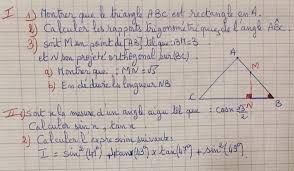 I 1) Montrer que le triangle ABC est rectangle en A.
2) Calculer les rapports trigonométrique, de l'angle AB̂C
3) soit M un point de [AB] tel que: BM = 3
et N son projeté orthogonal sur (BC)
a) Montrer que: MN = √5
b) En déduire la longueur NB
A
M
C
N
B
II 1) soit x la mesure d'un angle aigu tel que : cos x = √3/2
Calculer sin x, tan x
2) Calculer l'expression suivante:
I = sin²(47°) tan(43°) x tan(47°) + sin²(43°)